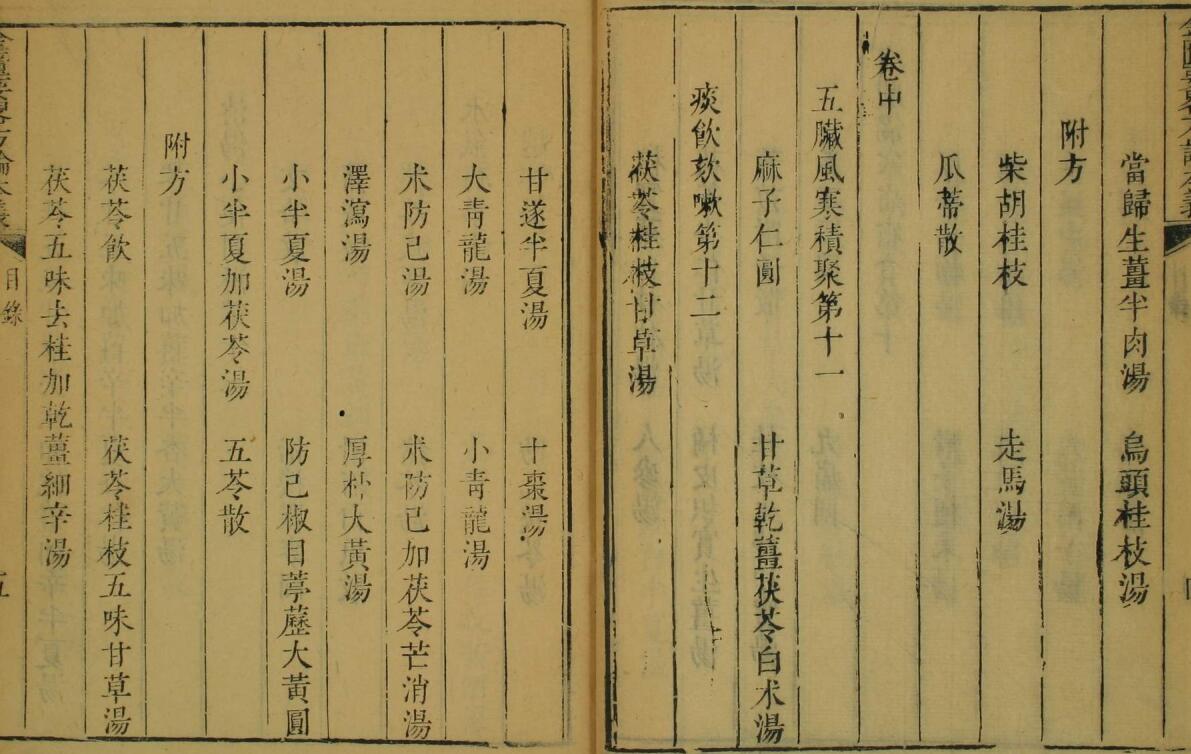 當歸生薑羊肉湯 烏頭桂枝湯
附方
柴胡桂枝 走馬湯
瓜蒂散
卷中
五臟風寒積聚第十一
麻子仁圓 甘草乾薑茯苓白术湯
痰飲欬嗽第十二
茯苓桂枝甘草湯
甘遂半夏湯 十棗湯
大青龍湯 小青龍湯
木防己湯 木防己加茯苓芒消湯
澤瀉湯 厚朴大黃湯
小半夏湯 防己椒目葶藶大黃圓
小半夏加茯苓湯 五苓散
附方
茯苓飲 茯苓桂枝五味甘草湯
茯苓五味去桂加乾薑細辛湯
金匱要略方論本義 目錄 五